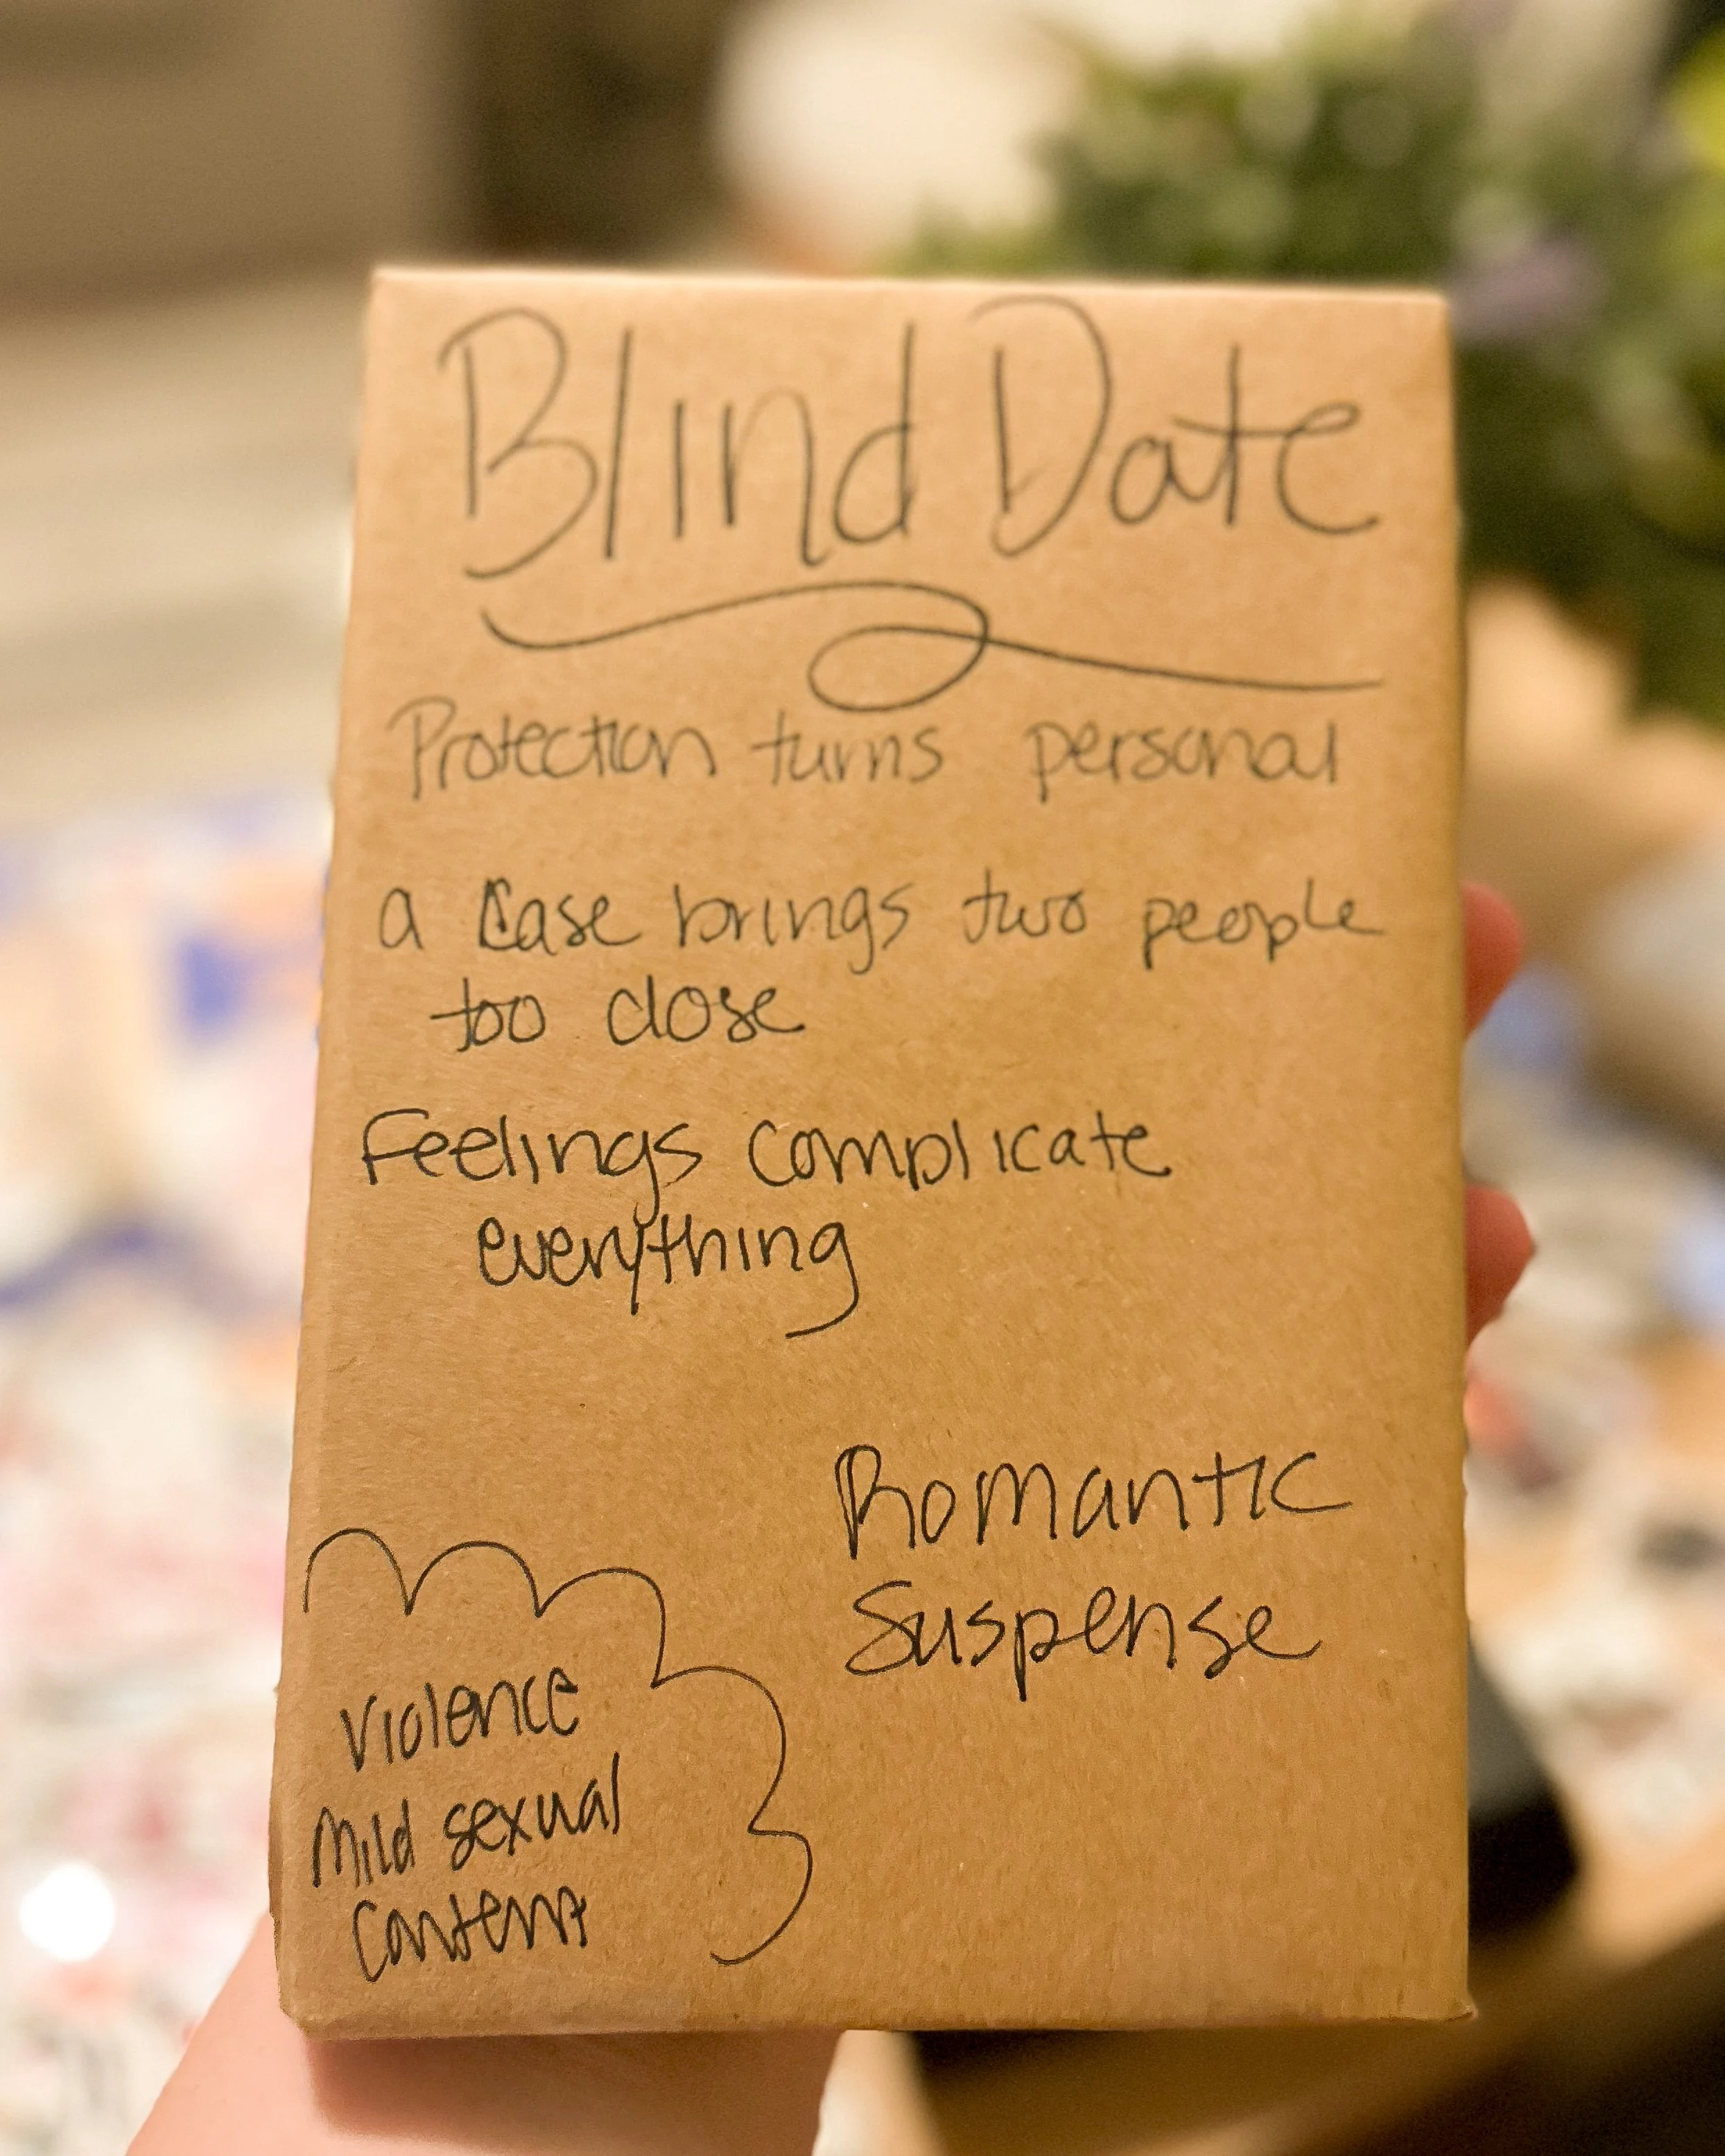 Blind Date
Protection turns personal
a Case brings two people
too close
Feelings complicate
everything
Romantic
Suspense
Violence
Mild sexual
Content